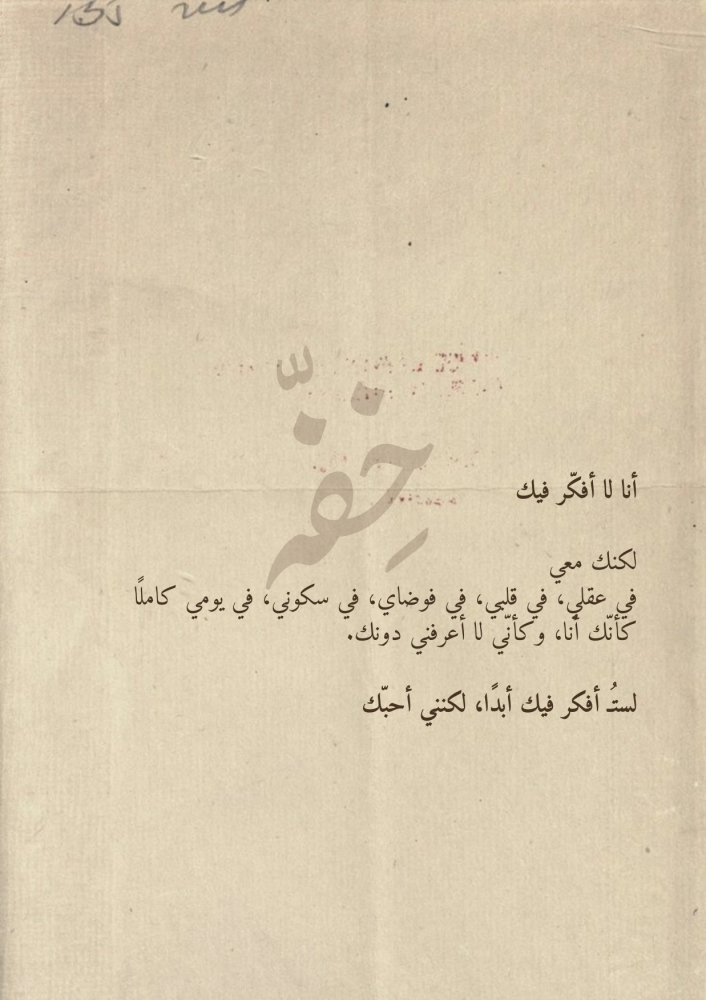 خِفّه
أنا لا أفكّر فيك
لكنك معي
في عقلي، في قلبي، في فوضاي، في سكوني، في يومي كاملًا
كأنّك أنا، وكأنّي لا أعرفني دونك.
لستُـ أفكر فيك أبدًا، لكنني أحبّك